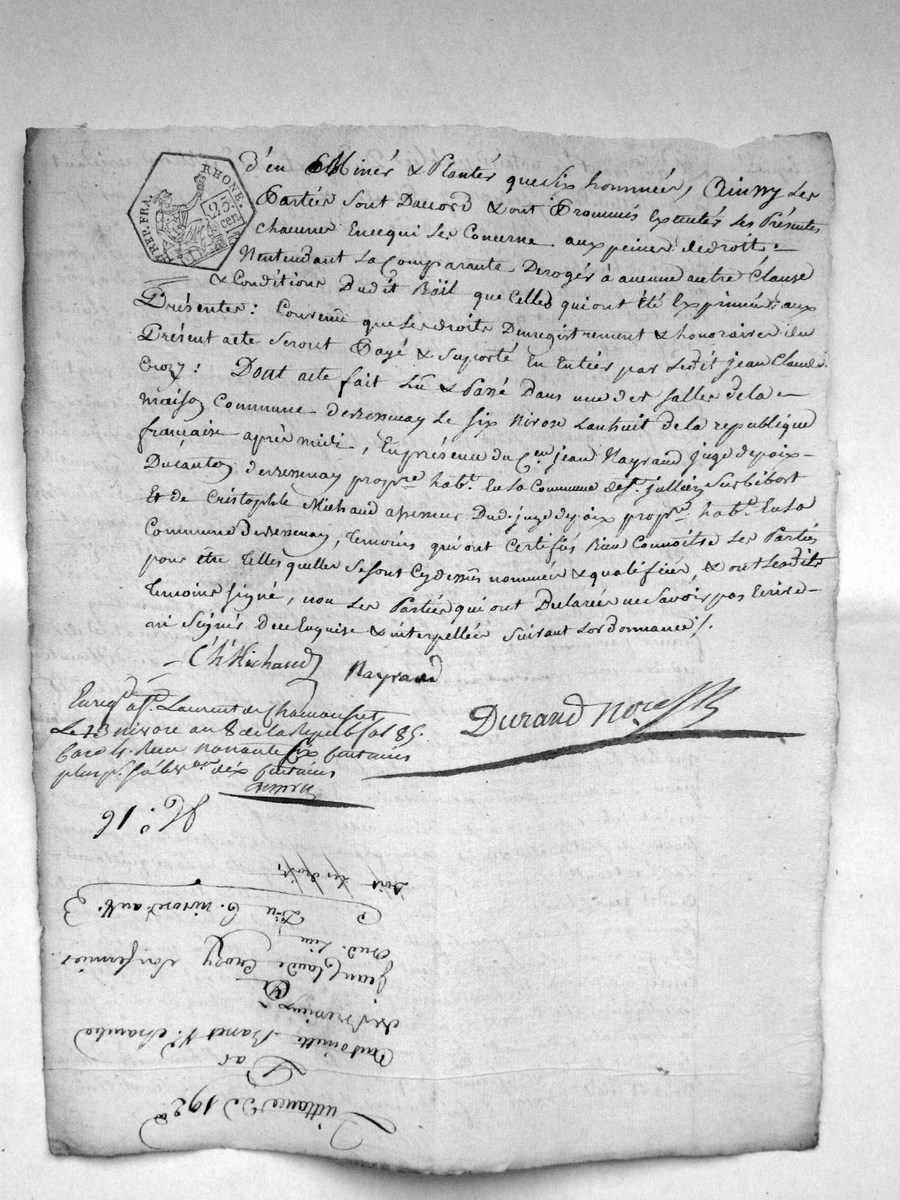 RHONE.
REP. FRA.
25
cen
d'en Minés & Plantés que six hommées, Ainsy les
Partiés sont Daccord & ont Prommis Exécutés les Présentes
chacune Encequi les Concerne aux peines de droit =
N'entendant la Comparante Deroger à aucune autre Clause
& Conditions Dudit Bail que Celles qui ont Eté Exprimées aux
Présentes : Convenu que les droits Denregistrement & honoraires du
Présent acte seront Payé & suporté En Entier par ledit jean Claude
Crozy : Dont acte fait Lû & Passé Dans une des salles dela =
maison Commune dessemay Le six Nivose Lanhuit de la republique
francaise après midi, En présence du Cen jean Nayrand juge depaix =
Ducanton dessemay propre. habt. En la Commune de st. jullien sur bibost
Et de Cristophle Michaud assesseur Dud. juge depaix propre. habt. En la
Commune dessemay, temoins qui ont Certifiés Bien Connoitre les Partiés
pour être telles quelles se sont Cydessus nommées & qualifiées, & ont lesdits
temoins signé, non les Partiés qui ont Declarées ne savoir pas Ecrire =
ni signer de ce Enquise & interpellées suivant Lordonnance /.
Ch. Michaud Nayrand
Durand Nore
Enregé. à St. Laurent de Chamousset
Le 13 nivose an 8 de la Repub. fol 85.
Case 4. Reçu nonante six centimes
plus pr. sub. dix centimes
N.° 16
Quittance D 192
Par
Antoinette Banet Ve.
A
Jean Claude Crozy son fermier
Dud. lieu
Du 6. nivose an 8.
Doit les droits